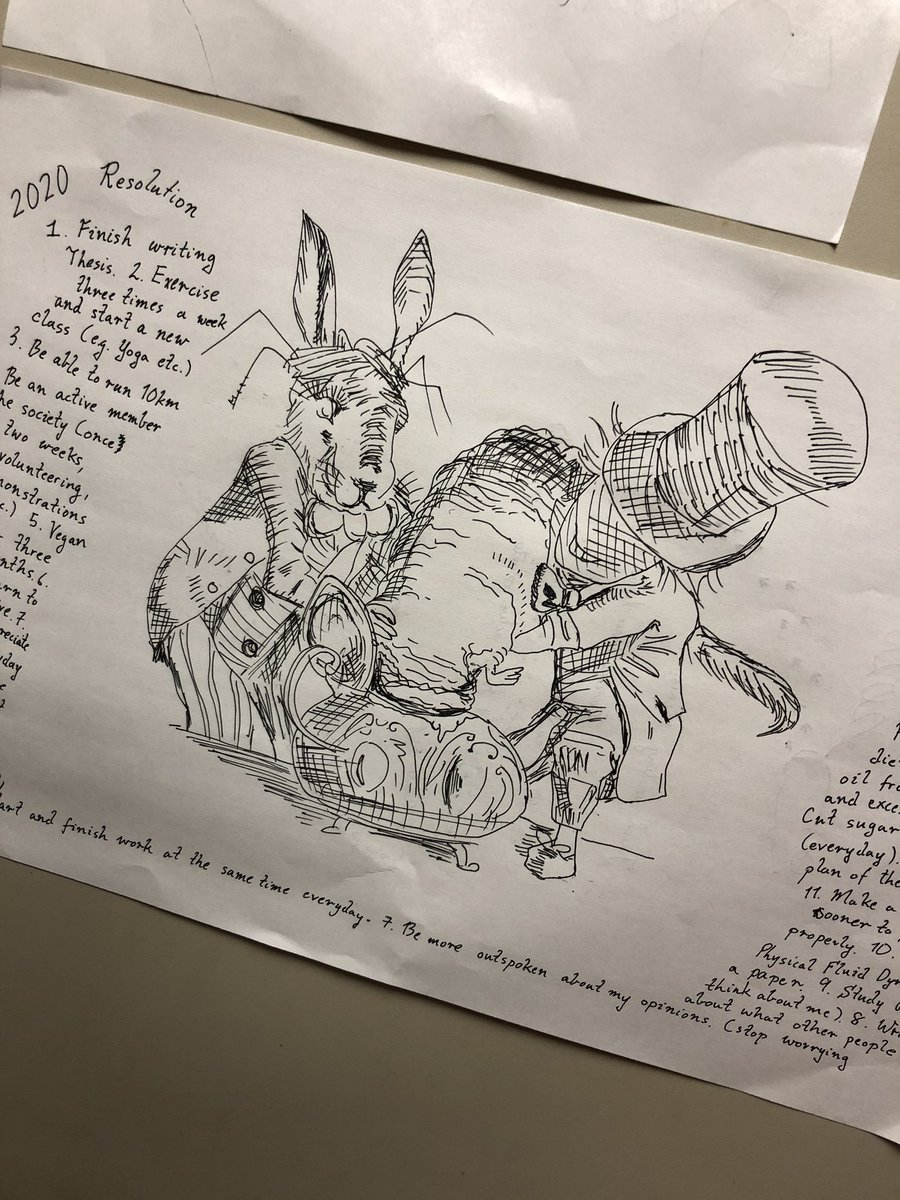 2020 Resolution
1. Finish writing
Thesis. 2. Exercise
three times a week
and start a new
class (eg. Yoga etc.)
3. Be able to run 10km
Be an active member
he society (once
two weeks,
volunteering,
monstrations
c.) 5. Vegan
three
nths 6.
rn to
ve. 7.
reciate
yday
art and finish work at the same time everyday. 7. Be more outspoken about my opinions. (stop worrying
about what other people
think about me). 8. Wr
a paper. 9. Study
Physical Fluid Dyn
properly. 10.
sooner to
11. Make a
plan of the
(everyday).
Cut sugar
and exce
oil fr
die